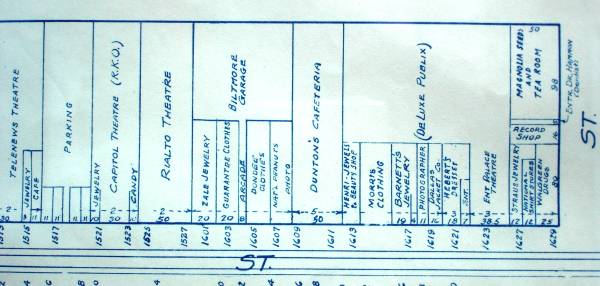 TELENEWS THEATRE
JEWELRY
CAFE
PARKING
JEWELRY
CAPITOL THEATRE (R.K.O.)
CANDY
RIALTO THEATRE
ZALE JEWELRY
GUARANTEE CLOTHES
BILTMORE
GARAGE
ARCADE
DUNDEE
CLOTHES
NAT'L PEANUTS
PHOTO
DUNTON'S CAFETERIA
HENRI-JEWELS
& BEAUTY SHOP
MORRIS
CLOTHING
BARNETT'S
JEWELRY
(DELUXE PUBLIX)
PHOTOGRAPHER
DALLAS
JACKET CO.
ENT. PALACE
THEATRE
MAGNOLIA SEEDS
AND
TEA ROOM
50
98
RECORD
SHOP
STRAUS JEWELRY
NATIONAL
SHIRT SHOPS
WALGREEN
DRUGS
ENTR. DR. HAMMON
ST.
50
50
50
20
20
50
1513
1515
1517
1521
1523
1525
1527
1601
1603
1605
1607
1609
1611
1613
1617
1619
1621
1623
1627
1629
ST.